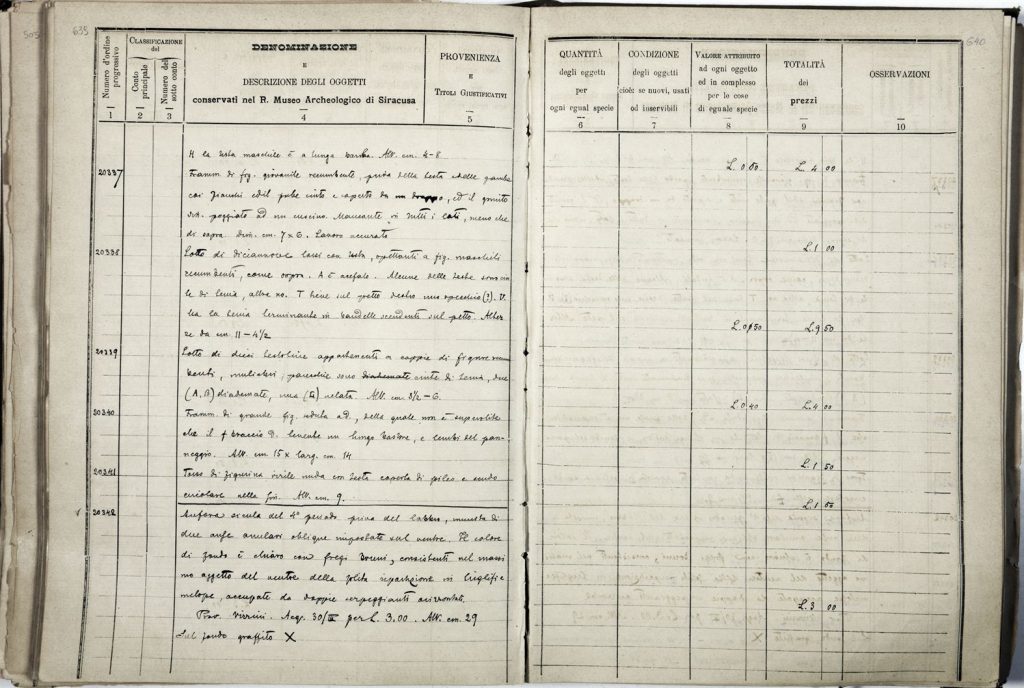 505
635
640
Numero d'ordine progressivo
1
CLASSIFICAZIONE
del
Conto principale
2
Numero del sotto conto
3
DENOMINAZIONE
E
DESCRIZIONE DEGLI OGGETTI
conservati nel R. Museo Archeologico di Siracusa
4
PROVENIENZA
E
TITOLI GIUSTIFICATIVI
5
QUANTITÀ
degli oggetti
per
ogni egual specie
6
CONDIZIONE
degli oggetti
cioè: se nuovi, usati
od inservibili
7
VALORE ATTRIBUITO
ad ogni oggetto
ed in complesso
per le cose
di eguale specie
8
TOTALITÀ
dei
prezzi
9
OSSERVAZIONI
10
H la testa maschile è a lunga barba. Alt. cm. 4-8
L. 0 50 L. 4 00
20337 Framm. di fig. giovanile recumbente, priva della testa e delle gambe
coi fianchi ed il pube cinto e coperto da un drappo, ed il gomito
sin. poggiato ad un cuscino. Mancante in tutti i lati, meno che
di sopra. Dim. cm. 7 x 6. Lavoro accurato
L. 1 00
20338 Lotto di diciannove busti con testa, spettanti a fig. maschili
recumbenti, come sopra. A è acefalo. Alcune delle teste sono cin-
te di tenia, altre no. T tiene sul petto destro uno specchio (?). V.
ha la tenia terminante in bandelle scendenti sul petto. Altez-
ze da cm. 11 - 4½
L. 0 50 L. 9 50
20339 Lotto di dieci testoline appartenenti a coppie di figure recum-
benti, muliebri; parecchie sono diademate cinte di tenia, due
(A, B) diademate, una velata. Alt. cm. 3½ - 6.
L. 0 40 L. 4 00
20340 Framm. di grande fig. seduta ad, della quale non è superstite
che il braccio D. tenente un lungo bastone, e lembi del pan-
neggio. Alt. cm 15 x larg. cm. 14
L. 1 50
20341 Torso di figurina virile nuda con testa coperta di pileo e scudo
circolare nella sin. Alt. cm. 9.
L. 1 50
20342 Anfora sicula del 4° periodo priva del labbro, munita di
due anse anulari oblique impostate sul ventre. Il colore
di fondo è chiaro con fregi bruni, consistenti nel massi-
mo aggetto del ventre della solita ripartizione in triglifi e
metope, occupate da doppie serpeggianti orizzontali.
Prov. Vizzini. Acq. 30/III per L. 3.00. Alt. cm. 29
L. 3 00
Sul fondo graffito X